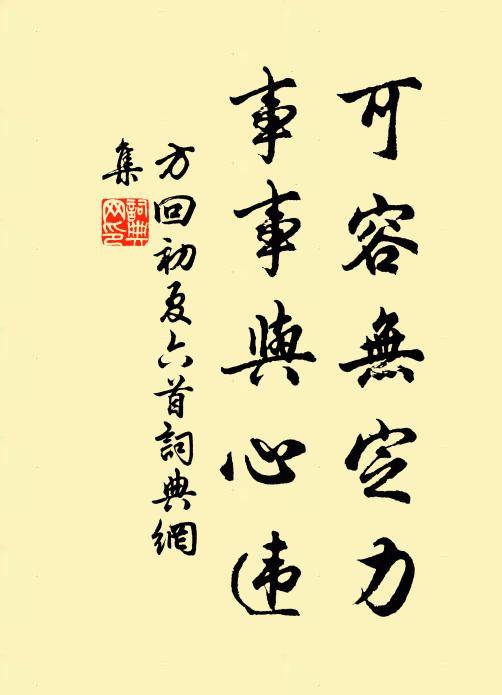 可容無定力
事事與心违
方回初夏六首詞典網
集
詞典
网印